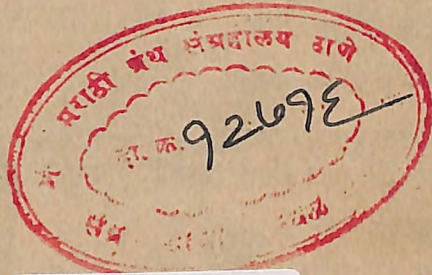 मराठी ग्रंथ संग्रहालय ठाणे
दा. क्र. १२७१६